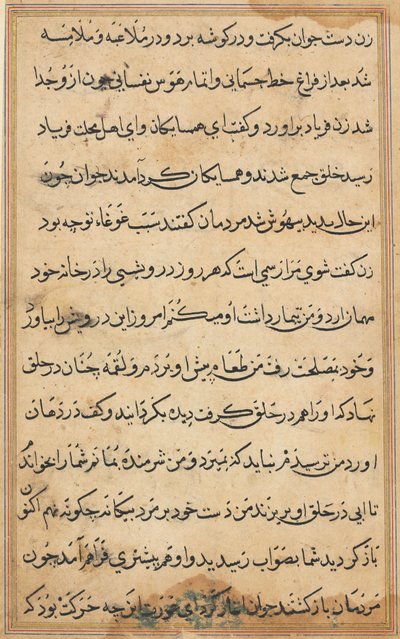 زن دست جوان بگرفت و در گوشه برد و در ملاعبه و ملامسه
شد بعد از فراغ خط جسمانی و اتمام هوس نفسانی چون از و جدا
شد زن فریاد برآورد و کفت ای همسایکان و ای اهل محلت فریاد
رسید خلق جمع شدند و همسایکان کرد آمدند جوان چون
این حال بدید بیهوش شد مردمان کفتند سبب غوغاء تو چه بود
زن کفت شوی مرا رسمی است که هر روز درویشی را در خانه خود
مهمان آرد و من تیمار داشت او میکنم امروز این درویش را بیاورد
و خود بمصلحت رفت من طعام پیش او بردم و لقمه چنان در حلق
نهاد که او را هم در حلق کرفت دیده بکردانید و کف در دهان
آورد من ترسیدم نباید که بمیرد و من شرمنده بمانم شما را بخواندم
تا آبی در حلق او بریزند من دست خود بر مرد بیکانه چکونه نهم اکنون
باز کردید شما بصواب رسیدید و او هم بیشتری فراهم آمد چون
مردمان باز کشتند جوان آغاز کرد ای عورت این چه حرکت بود که